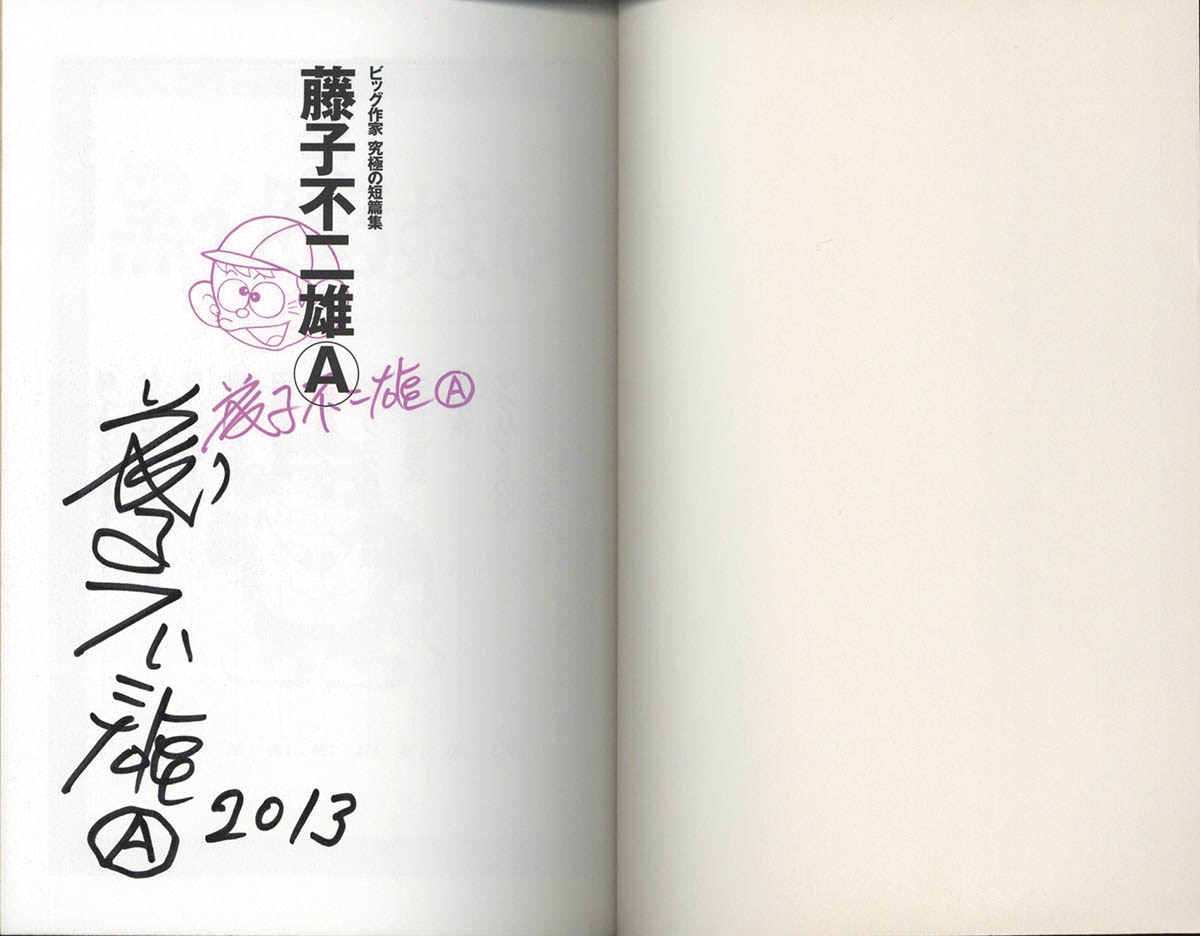 ビッグ作家 究極の短篇集
藤子不二雄Ⓐ
藤子不二雄Ⓐ
藤子不二雄Ⓐ
2013